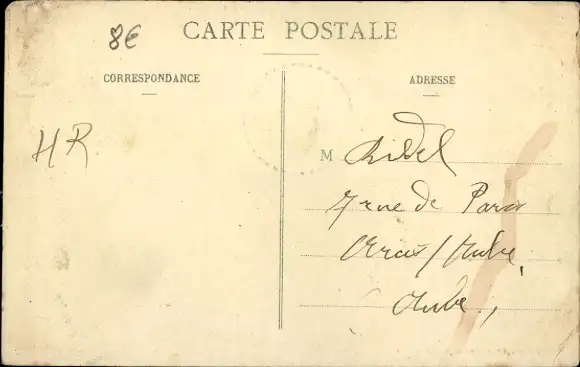 8€
CARTE POSTALE
CORRESPONDANCE
ADRESSE
HR
M Ridel
7 rue de Paris
Arcis/Aube,
Aube,